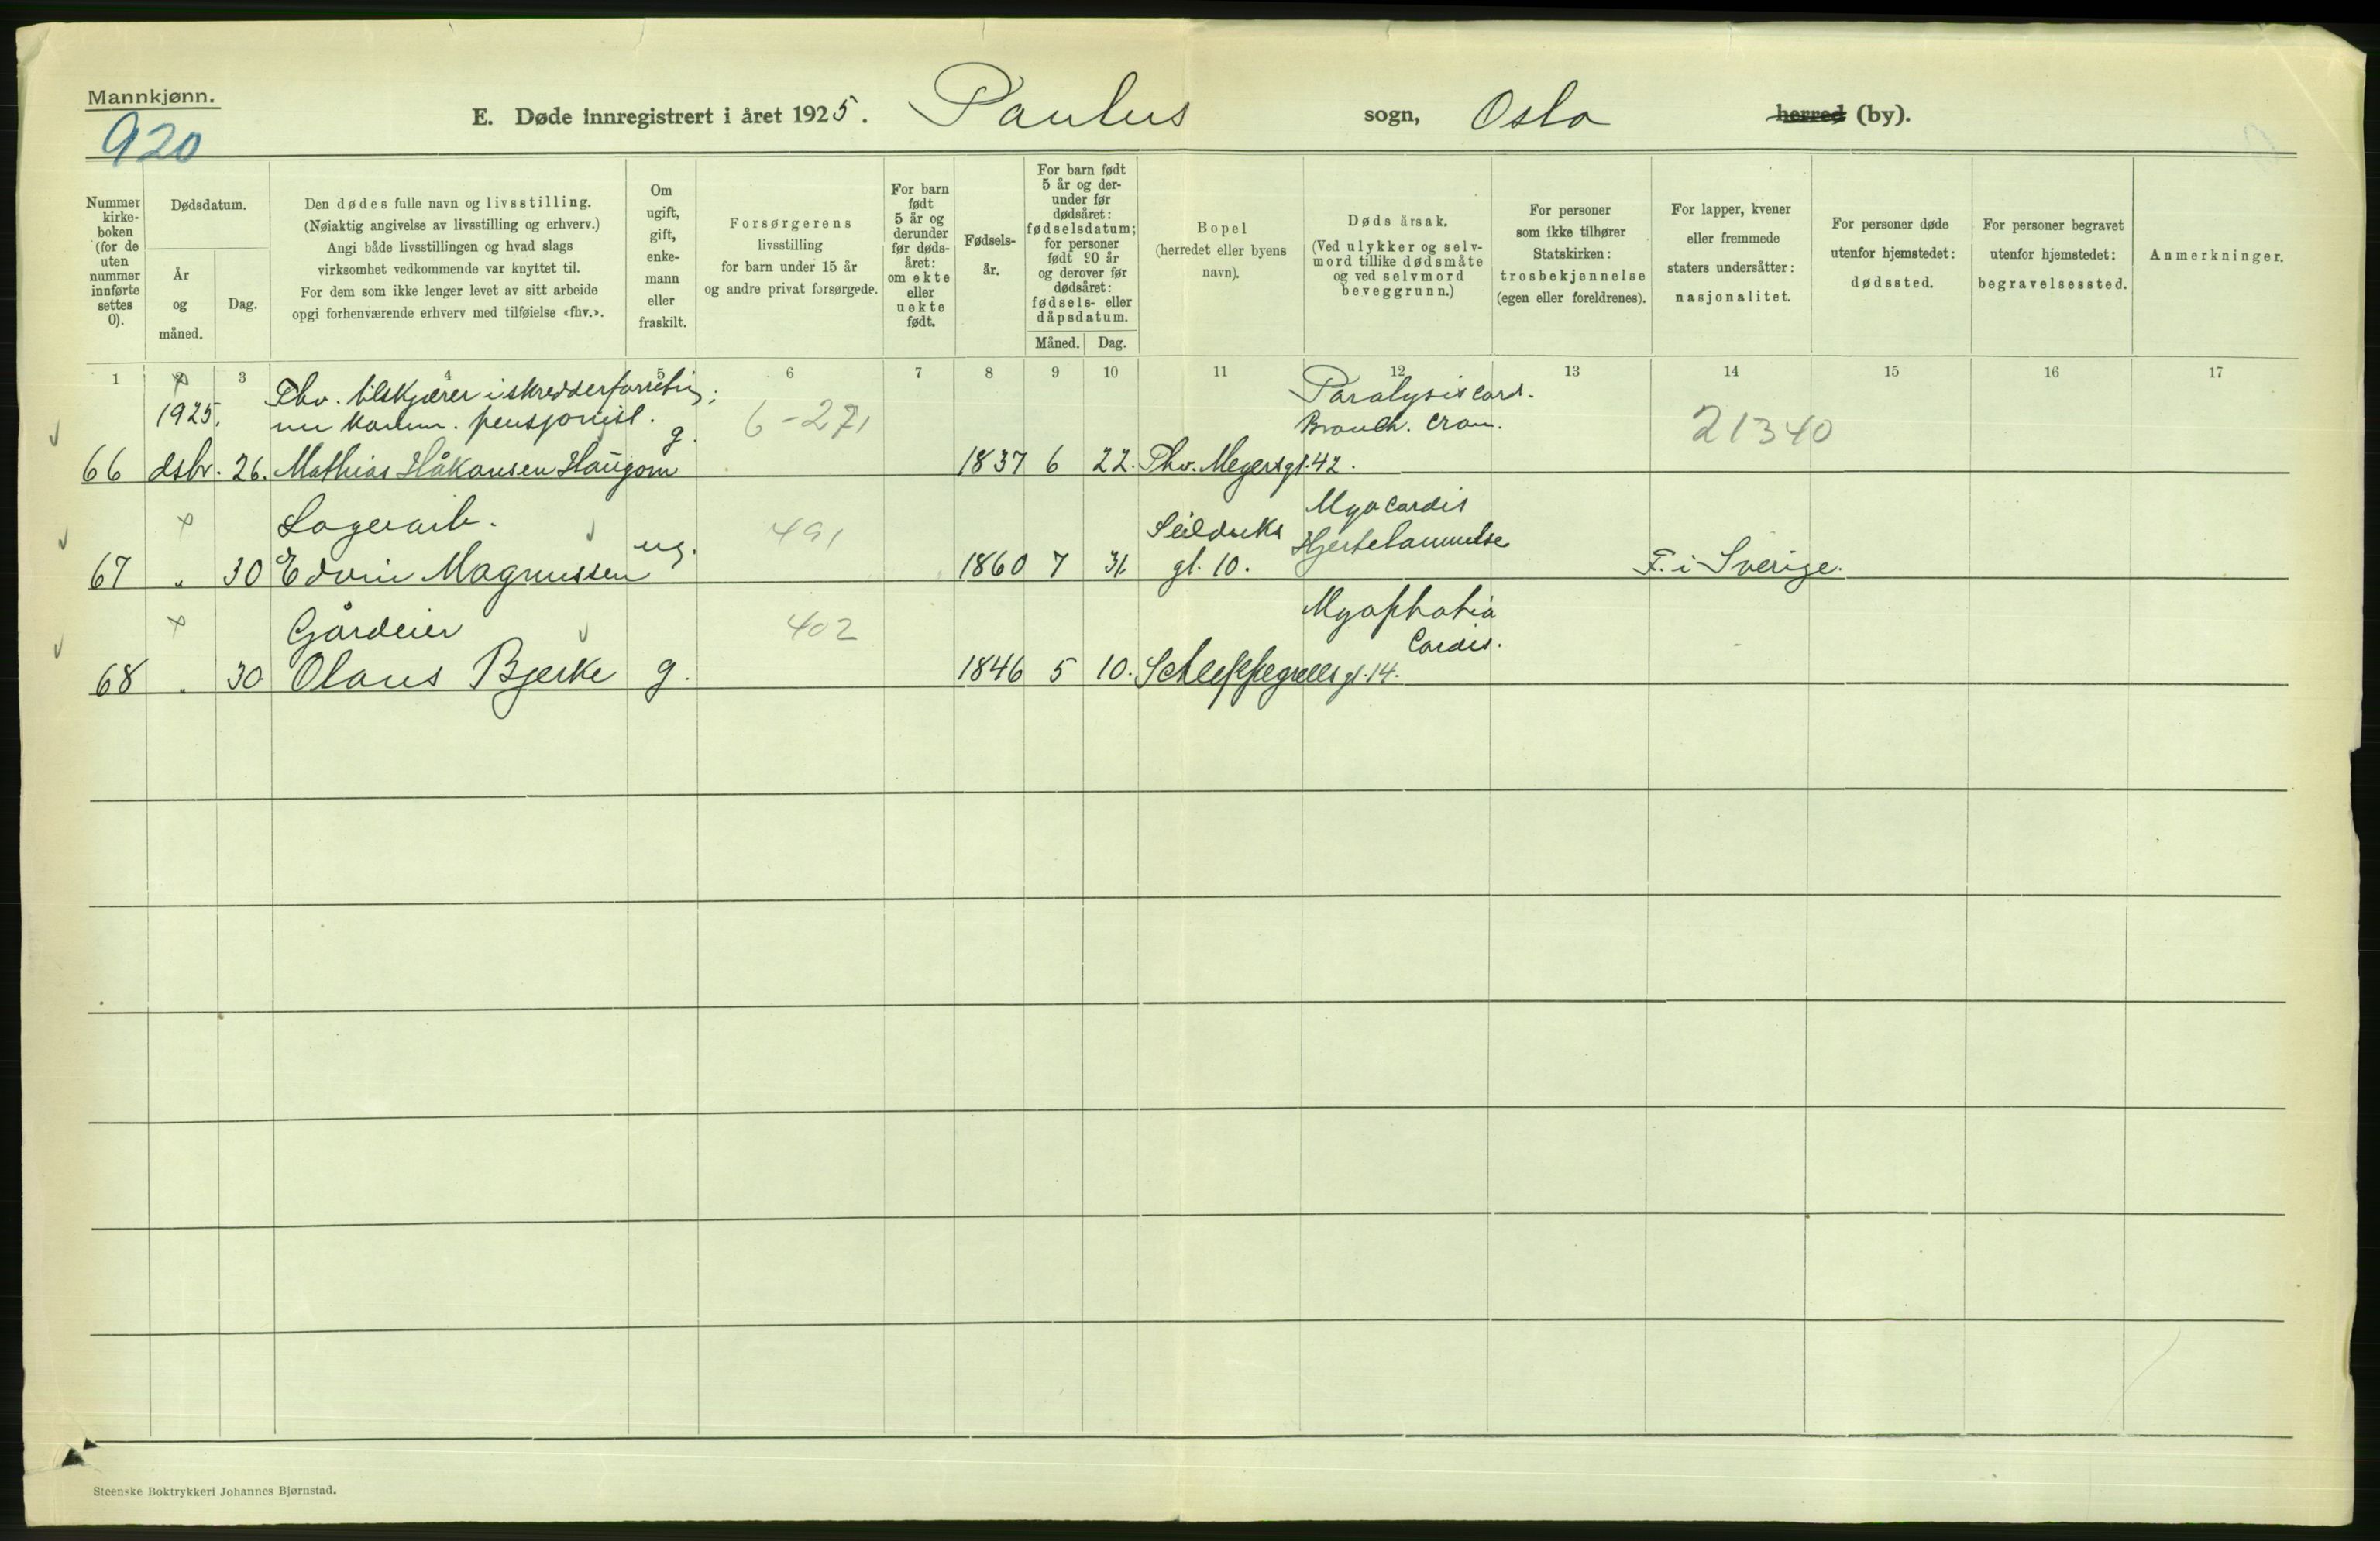 Mannkjønn.
920
E. Døde innregistrert i året 1925. Paulus sogn, Oslo herred (by).
Nummer kirke-boken (for de uten nummer innførte settes 0).
Dødsdatum.
År og måned.
Dag.
Den dødes fulle navn og livsstilling.
(Nøiaktig angivelse av livsstilling og erhverv.)
Angi både livsstillingen og hvad slags
virksomhet vedkommende var knyttet til.
For dem som ikke lenger levet av sitt arbeide
opgi forhenværende erhverv med tilføielse «fhv.».
Om ugift, gift, enke-mann eller fraskilt.
Forsørgerens
livsstilling
for barn under 15 år
og andre privat forsørgede.
For barn født 5 år og derunder før døds-året: om ekte eller uekte født.
Fødsels-år.
For barn født 5 år og der-under før dødsåret: fødselsdatum; for personer født 90 år og derover før dødsåret: fødsels- eller dåpsdatum.
Måned.
Dag.
Bopel
(herredet eller byens
navn).
Dødsårsak.
(Ved ulykker og selv-
mord tillike dødsmåte
og ved selvmord
beveggrunn.)
For personer
som ikke tilhører
Statskirken:
trosbekjennelse
(egen eller foreldrenes).
For lapper, kvener
eller fremmede
staters undersåtter:
nasjonalitet.
For personer døde
utenfor hjemstedet:
dødssted.
For personer begravet
utenfor hjemstedet:
begravelsessted.
Anmerkninger.
1 2 3 4 5 6 7 8 9 10 11 12 13 14 15 16 17
Fhv. tilskjærer i skredderforretning;
1925. nu komm. pensjonist. g. 6-271 Paralysis Card. Bronch. cron. 21340
66 dsbr. 26. Mathias Håkonsen Haugom 1837 6 22. Thv. Meyersgt. 42.
x Lagerarb. ug. 491 Seilduks Myocardis Hjertelammelse
67 " 30 Edvin Magnussen 1860 7 31. gt. 10. F. i Sverige.
x Gårdeier 402
68 " 30 Olaus Bjerke g. 1846 5 10. Schleppegrells gt. 14. Cardis.
Steenske Boktrykkeri Johannes Bjørnstad.